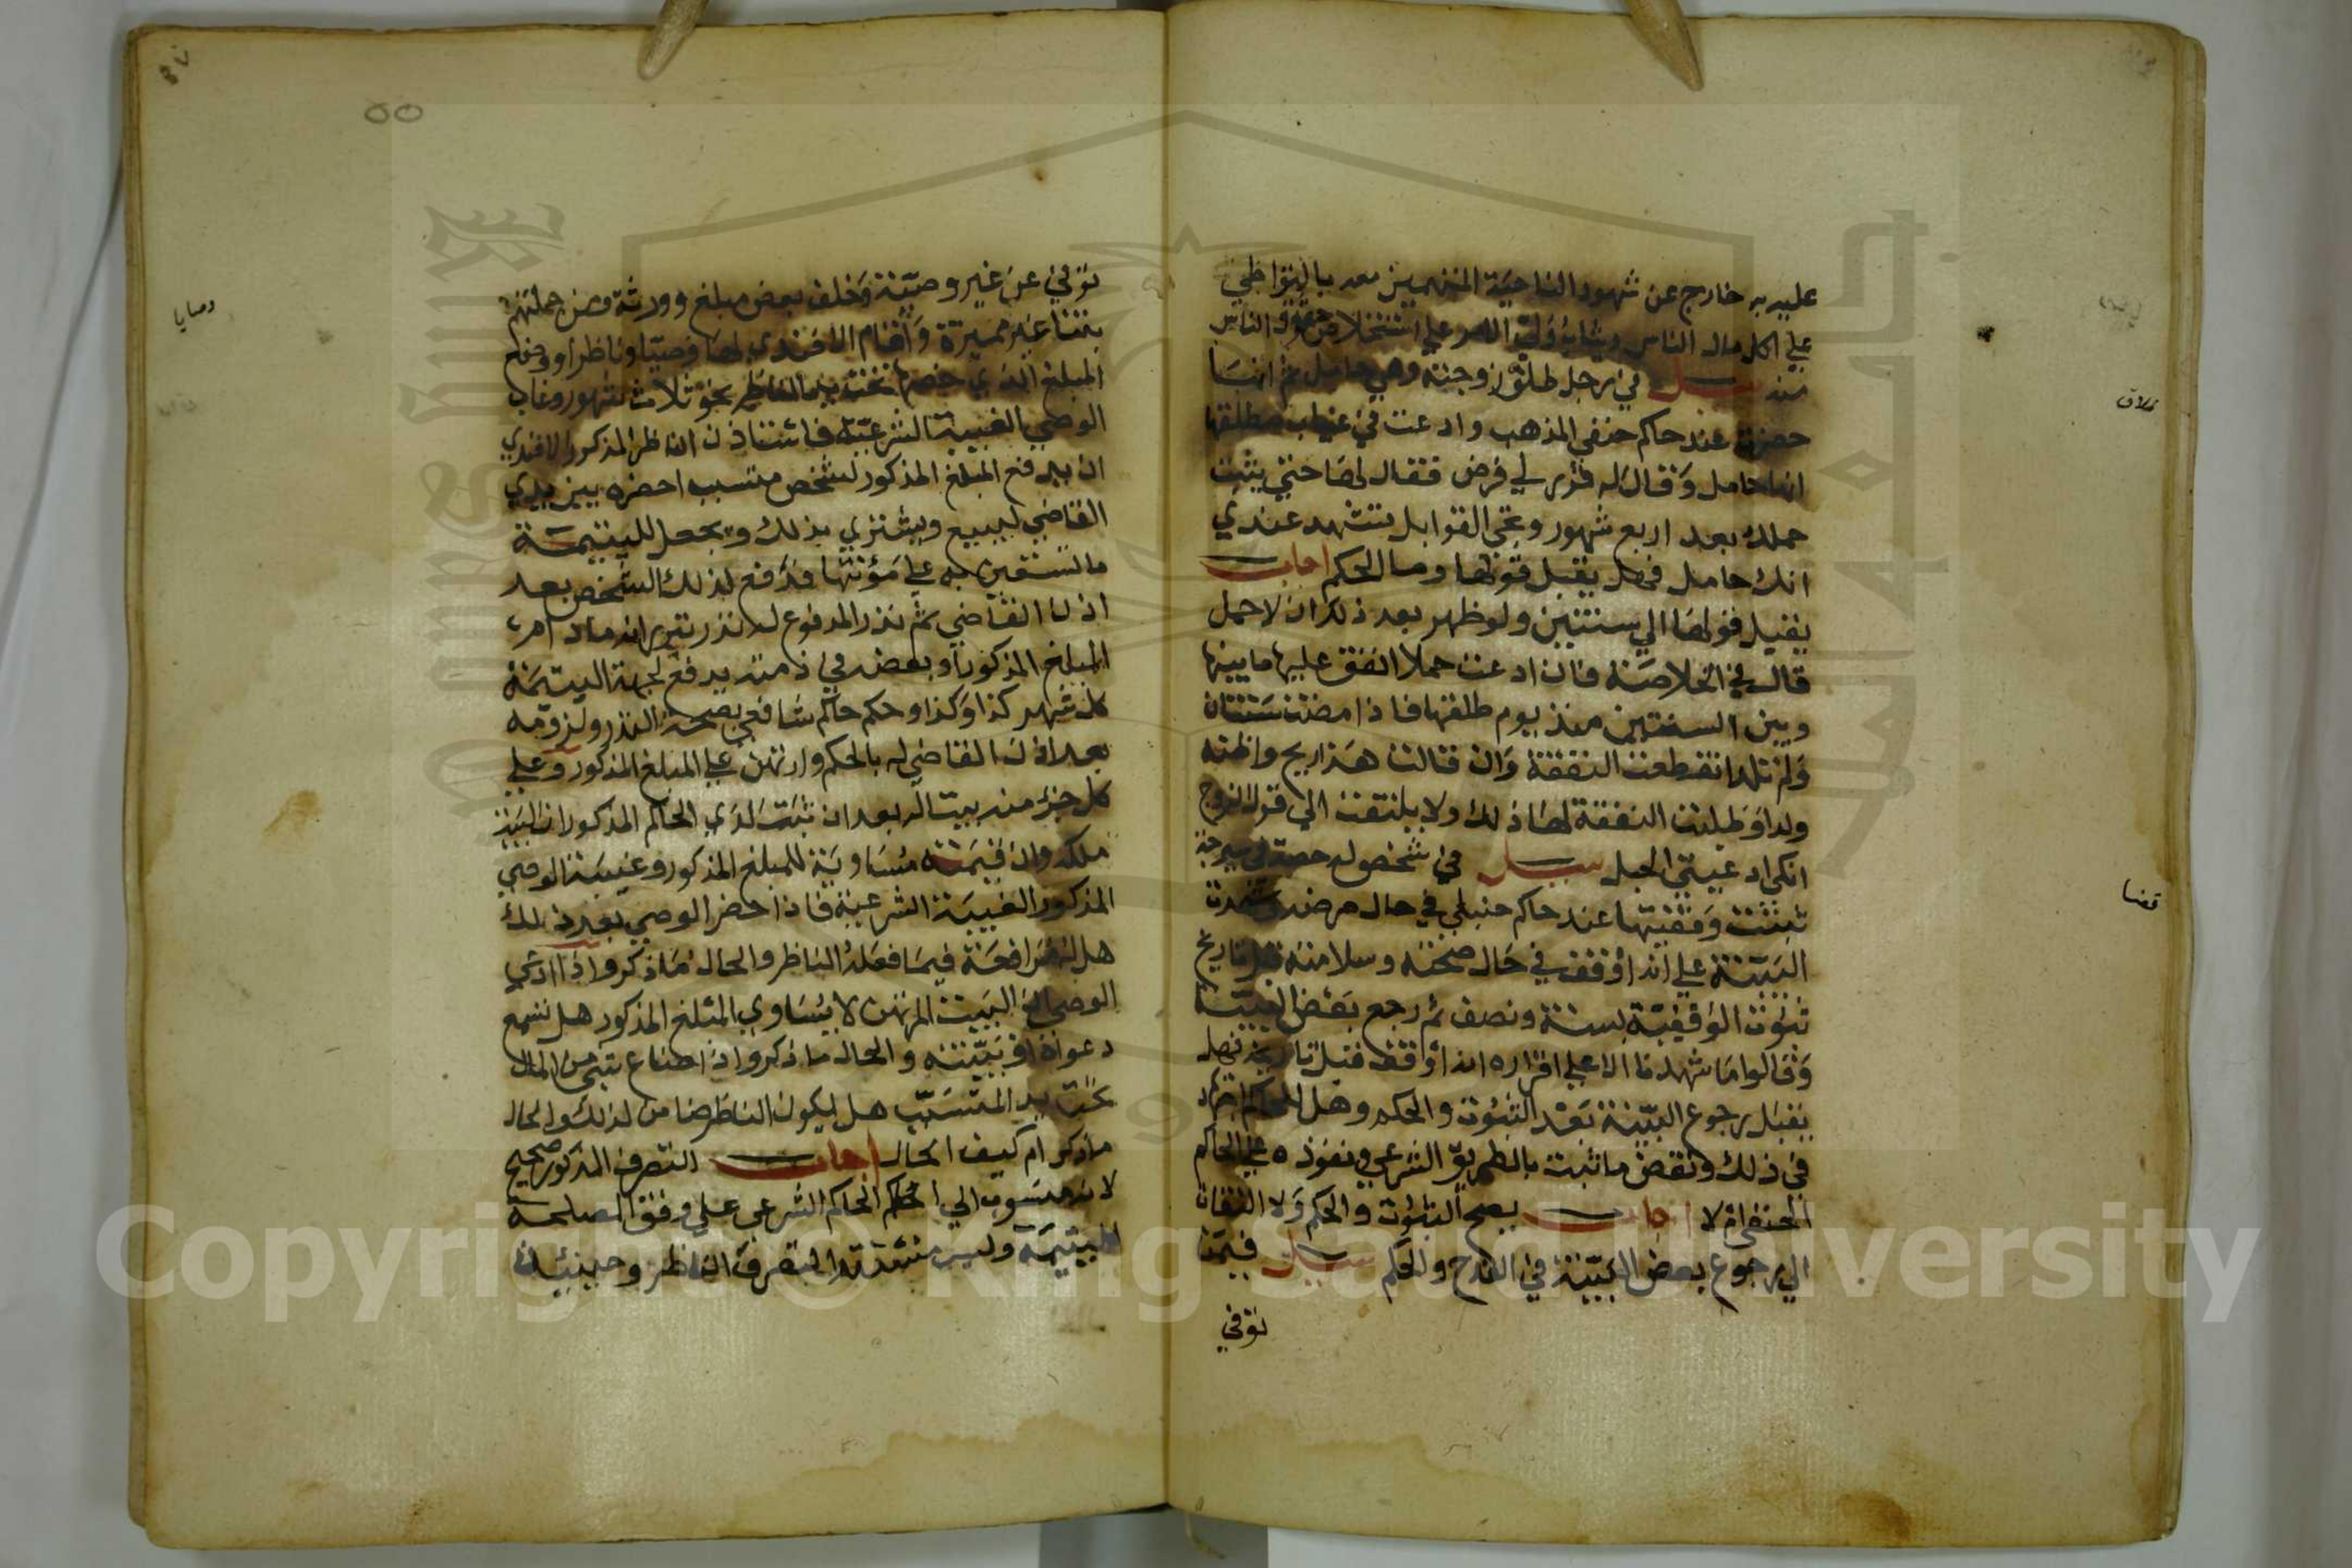 عليه به خارج عن شهود الناحية المتهمين معه بالتواطي
علي اكل مال الناس ويثاب ولي الامر علي استخلاص حقوق الناس
منه سيل في رجل طلق زوجته وهي حامل ثم انها
طلاق
حضرت عند حاكم حنفي المذهب وادعت في غياب مطلقها
انها حامل وقال له قرر لي فرض فقال لها حتي يثبت
حملك بعد اربع شهور وتجي القوابل تشهد عندي
انك حامل فهل يقبل قولها وما الحكم اجاب
يقبل قولها الي سنتين ولو ظهر بعد ذلك ان لا حمل
قال في الخلاصة فان ادعت حملا انفق عليها ما بينها
وبين السنتين منذ يوم طلقها فاذا مضت سنتان
ولم تلد انقطعت النفقة وان قالت هذا ريح واظنه
ولدا وطلبت النفقة لها ذلك ولا يلتفت الي قول الزوج
انك اد عيتي الحبل سيل في شخص له حصة في
قضا
ثبتت وقفيتها عند حاكم حنبلي في حال مرضه وشهدت
البينة علي انه اوقف في حال صحته وسلامته قبل تاريخ
ثبوت الوقفية بسنة ونصف ثم رجع بعض البينة
وقالوا ما شهدنا الا علي اقراره انه اوقف قبل تاريخه فهل
يقبل رجوع البينة بعد الثبوت والحكم وهل للحاكم
في ذلك ونقض ما ثبت بالطريق الشرعي ونفوذه علي الحاكم
الحنفي ام لا اجاب يصح الثبوت والحكم ولا التفات
الي رجوع بعض البينة في القدح والحكم سيل فيمن
توفي
٥٥
توفي عن غير وصية وخلف بعض مبلغ وورثة ومن جملتهم
وصايا
بنتا غير مميزة واقام الافندي لها وصيا وناظرا ووضع
المبلغ الذي خصها تحت يد الناظر نحو ثلاث شهور وغاب
الوصي الغيبة الشرعية فاستاذن الناظر المذكور الافندي
ان يدفع المبلغ المذكور لشخص متسبب احضره بين يدي
القاضي ليبيع ويشتري بذلك ويجعل لليتيمة
ما تستعين به علي مؤنتها فدفع لذلك الشخص بعد
اذن القاضي ثم نذر المدفوع له نذر تبرر انه مادام
المبلغ المذكور او بعضه في ذمته يدفع لجهة اليتيمة
كل شهر كذا وكذا وحكم حاكم شافعي بصحة النذر ولزومه
بعد اذن القاضي له بالحكم وارتهن علي المبلغ المذكور وعلي
كل جزء منه بيتا له بعد ان ثبت لدي الحاكم المذكور ان البيت
ملكه وان قيمته مساوية للمبلغ المذكور وغيبة الوصي
المذكور الغيبة الشرعية فاذا حضر الوصي بعد ذلك
هل له مرافعة فيما فعله الناظر والحال ما ذكر واذا ادعي
الوصي ان البيت المرتهن لا يساوي المبلغ المذكور هل تسمع
دعواه او بينته والحال ما ذكر واذا ضاع شي من المال
تحت يد المتسبب هل يكون الناظر ضامن لذلك والحال
ما ذكر ام كيف الحال اجاب التصرف المذكور صحيح
لانه منسوب الي حكم الحاكم الشرعي علي وفق المصلحة
لليتيمة وليس مستندا لتصرف الناظر وحينئذ
Copyright © King Saud University